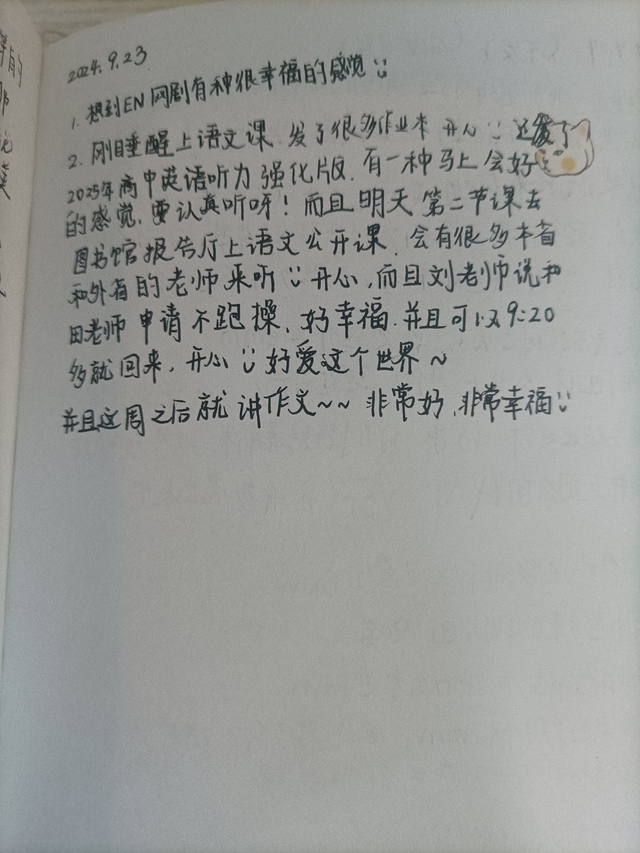 2024.9.23
1. 想到EN网剧有种很幸福的感觉
2. 刚睡醒上语文课 发了很多作业本 开心 还发了
2025年高中英语听力强化版. 有一种马上会好
的感觉. 要认真听呀！而且明天第二节课去
图书馆报告厅上语文公开课. 会有很多本省
和外省的老师来听 开心,而且刘老师说和
田老师申请不跑操. 好幸福. 并且可以9:20
多就回来, 开心 好爱这个世界~
并且这周之后就讲作文~~ 非常好,非常幸福